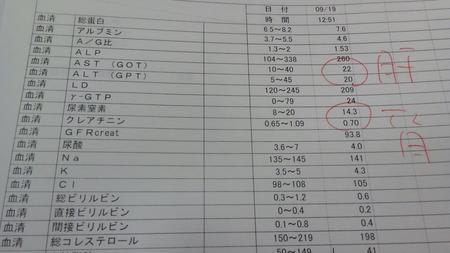 日付 09/19
時間 12:51
血清 総蛋白 6.5～8.2 7.6
血清 アルブミン 3.7～5.5 4.6
血清 A／G比 1.3～2 1.53
血清 ALP 104～338 260
血清 AST（GOT） 10～40 22
血清 ALT（GPT） 5～45 20
血清 LD 120～245 209
血清 γ-GTP 0～79 24
血清 尿素窒素 8～20 14.3
血清 クレアチニン 0.65～1.09 0.70
血清 GFRcreat 93.8
血清 尿酸 3.6～7 4.0
血清 Na 135～145 141
血清 K 3.5～5 4.3
血清 Cl 98～108 105
血清 総ビリルビン 0.3～1.2 0.6
血清 直接ビリルビン 0～0.4 0.2
血清 間接ビリルビン 0.1～0.8 0.4
血清 総コレステロール 150～219 198
50～149 L 41